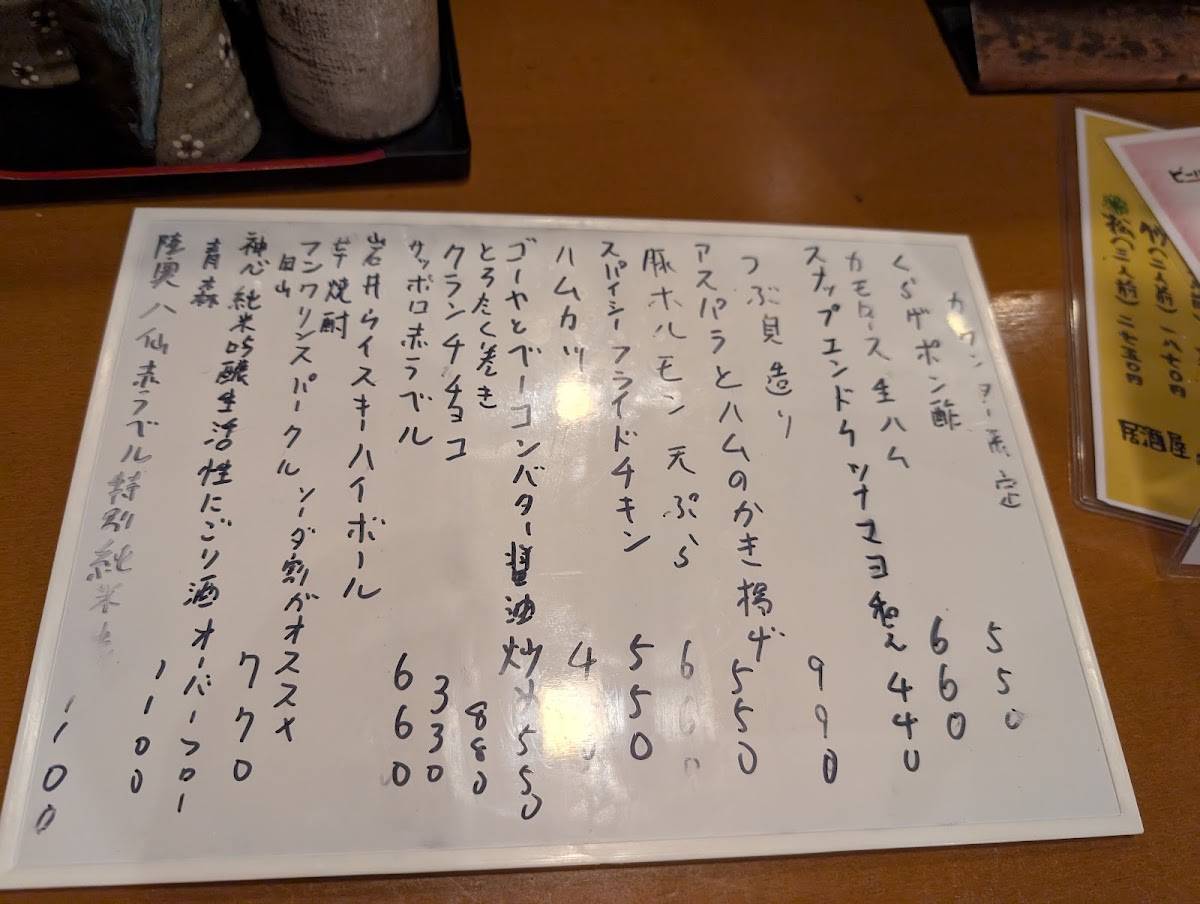 カウンター限定
くらげポン酢 550
カモロース生ハム 660
スナップエンドウツナマヨ和え 440
つぶ貝造り 990
アスパラとハムのかき揚げ 550
豚ホルモン天ぷら 660
スパイシーフライドチキン 550
ハムカツ
ゴーヤとベーコンバター醤油炒め 550
とろたく巻き 880
クランチチョコ 330
サッポロ赤ラベル 660
岩井ウイスキーハイボール
芋焼酎
フンワリンスパークル ソーダ割がオススメ 770
岡山
神心純米吟醸生活性にごり酒オーバーフロー 1100
青森
陸奥八仙赤ラベル特別純米 1100
竹(二人前)一八七〇円
松(三人前)二七五〇円
居酒屋